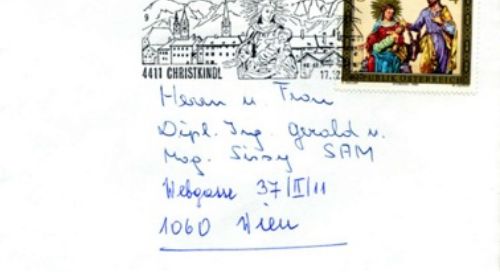 9
4411 CHRISTKINDL
17.12
REPUBLIK ÖSTERREICH
Herrn u. Frau
Dipl. Ing. Gerald u.
Mag. Sissy SAM
Webgasse 37/II/11
1060 Wien